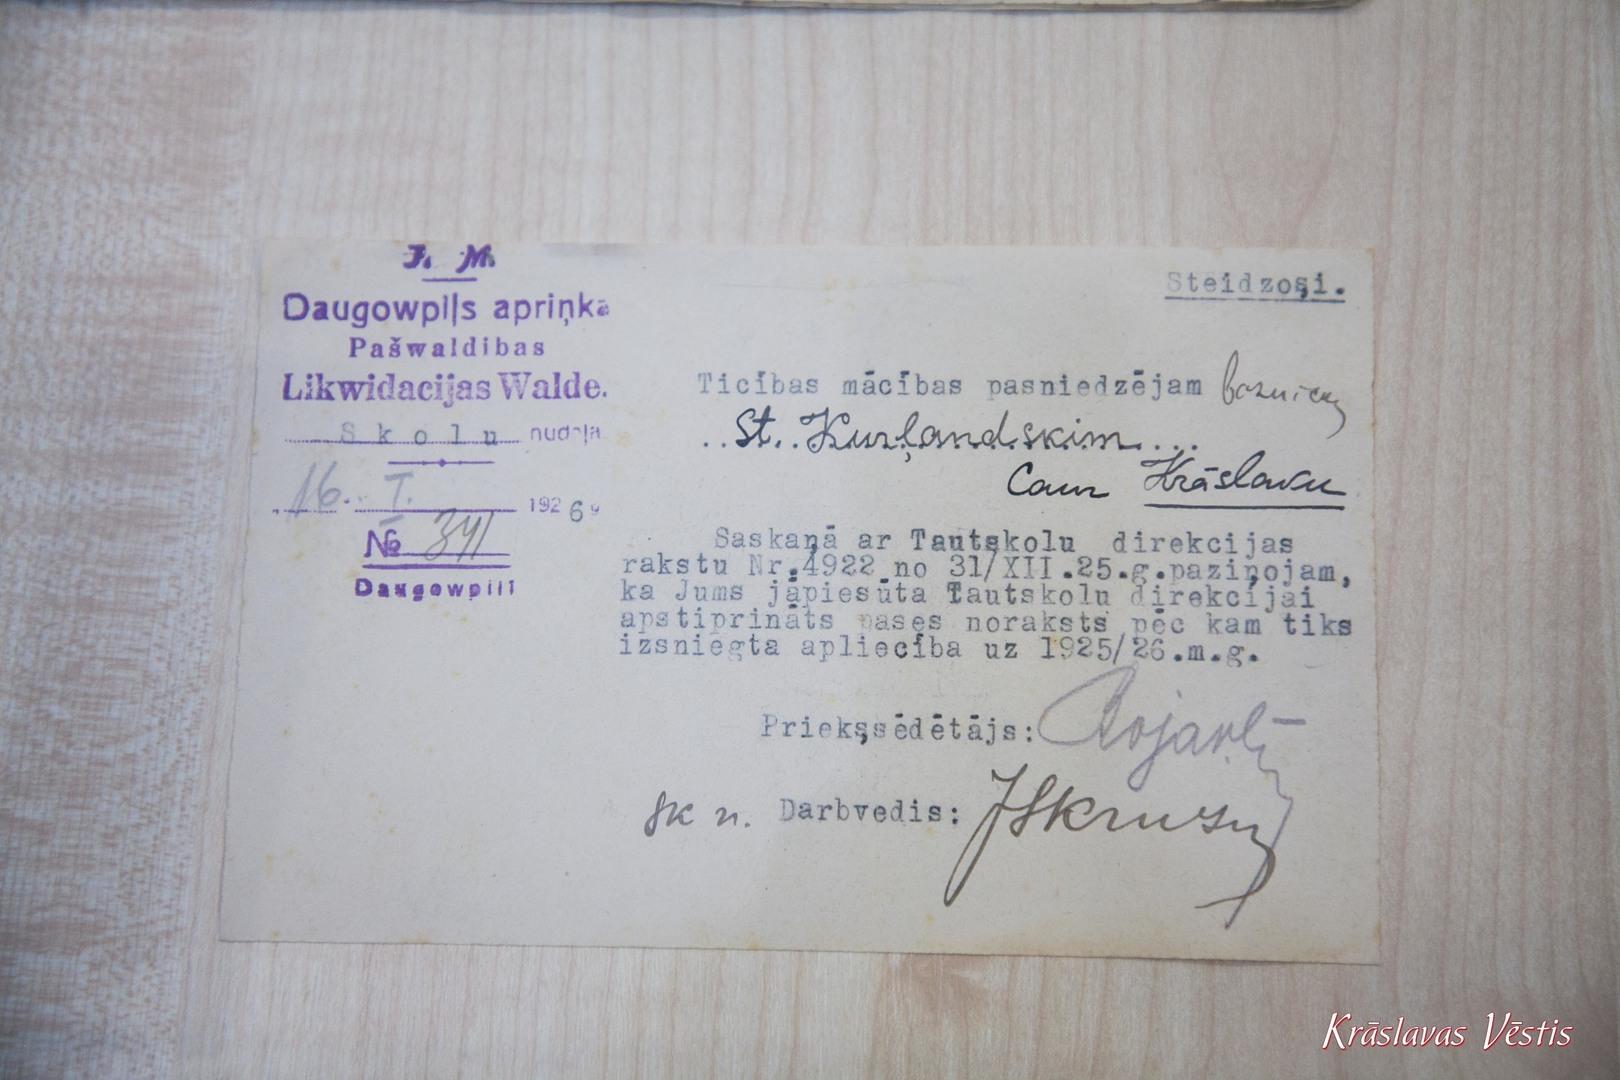 J. M.
Daugowpils apriņķa
Pašwaldibas
Likwidacijas Walde.
Skolu nodaļa
16. I. 1926 g
№ 341
Daugowpilī
Steidzoşi.
Ticības mācības pasniedzējam
St. Kurļandskim
Caur Krāslavu
Saskaņā ar Tautskolu direkcijas
rakstu Nr.4922 no 31/XII.25.g.paziņojam,
ka Jums jāpiesūta Tautskolu direkcijai
apstiprināts pases noraksts pēc kam tiks
izsniegta apliecība uz 1925/26.m.g.
Priekşsēdētājs:
sk n. Darbvedis:
Krāslavas Vēstis